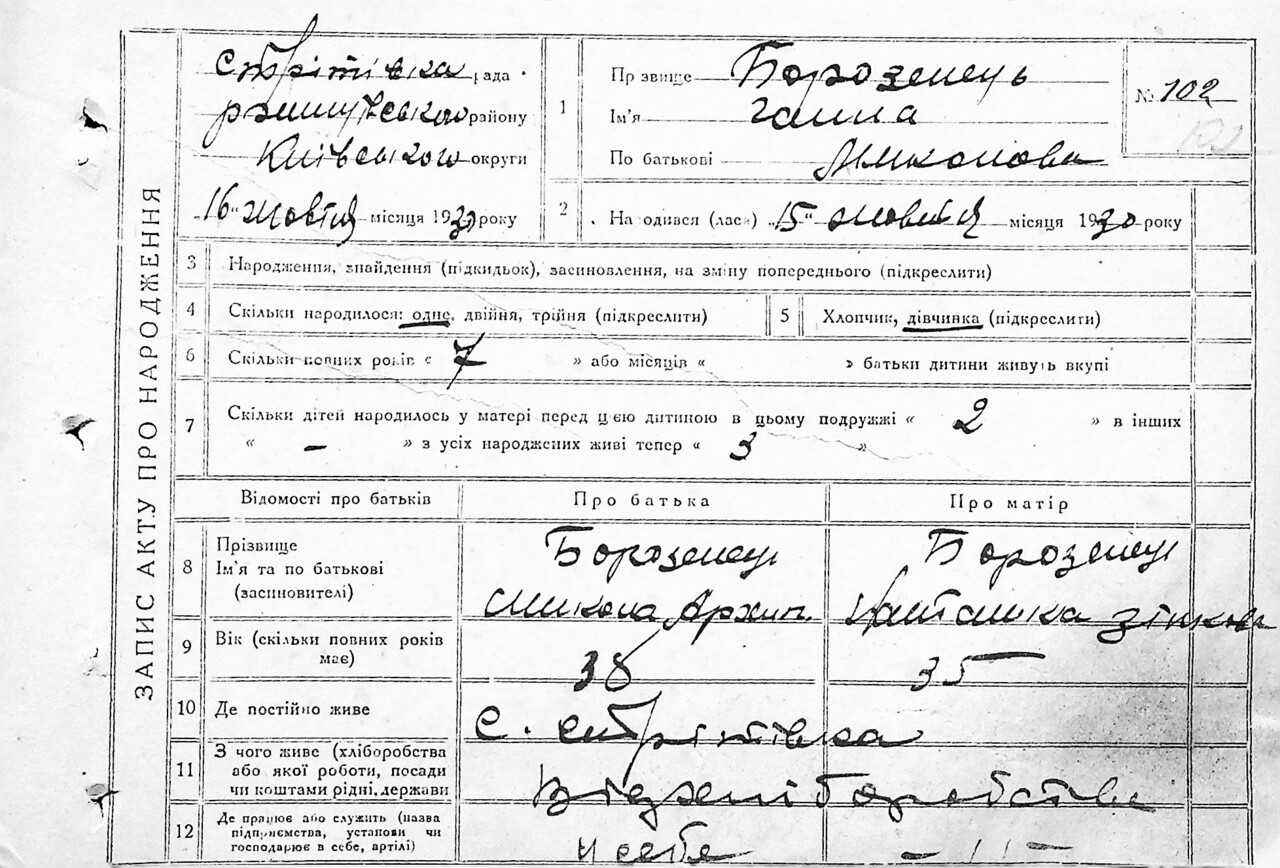 ЗАПИС АКТУ ПРО НАРОДЖЕННЯ
Стрітівка рада
Ржищівського району
Київського округи
„16" Жовтня місяця 1930 року
1 Прізвище Борозенець
Ім'я Ганна
По батькові Миколова
№ 102
2 Народився (лася) „15" жовтня місяця 1930 року
3 Народження, знайдення (підкидьок), засиновлення, на зміну попереднього (підкреслити)
4 Скільки народилося: одне, двійня, трійня (підкреслити)
5 Хлопчик, дівчинка (підкреслити)
6 Скільки повних років « 7 » або місяців « » батьки дитини живуть вкупі
7 Скільки дітей народилось у матері перед цією дитиною в цьому подружжі « 2 » в інших
« – » з усіх народжених живі тепер « 3 »
Відомості про батьків Про батька Про матір
8 Прізвище
Ім'я та по батькові
(засиновителі)
Борозенець
Микола Архип.
Борозенець
9 Вік (скільки повних років
має)
38 35
10 Де постійно живе с. Стрітівка
11 З чого живе (хліборобства
або якої роботи, посади
чи коштами рідні, держави
Від хліборобства
12 Де працює або служить (назва
підприємства, установи чи
господарює в себе, артілі)
У себе – 11 –